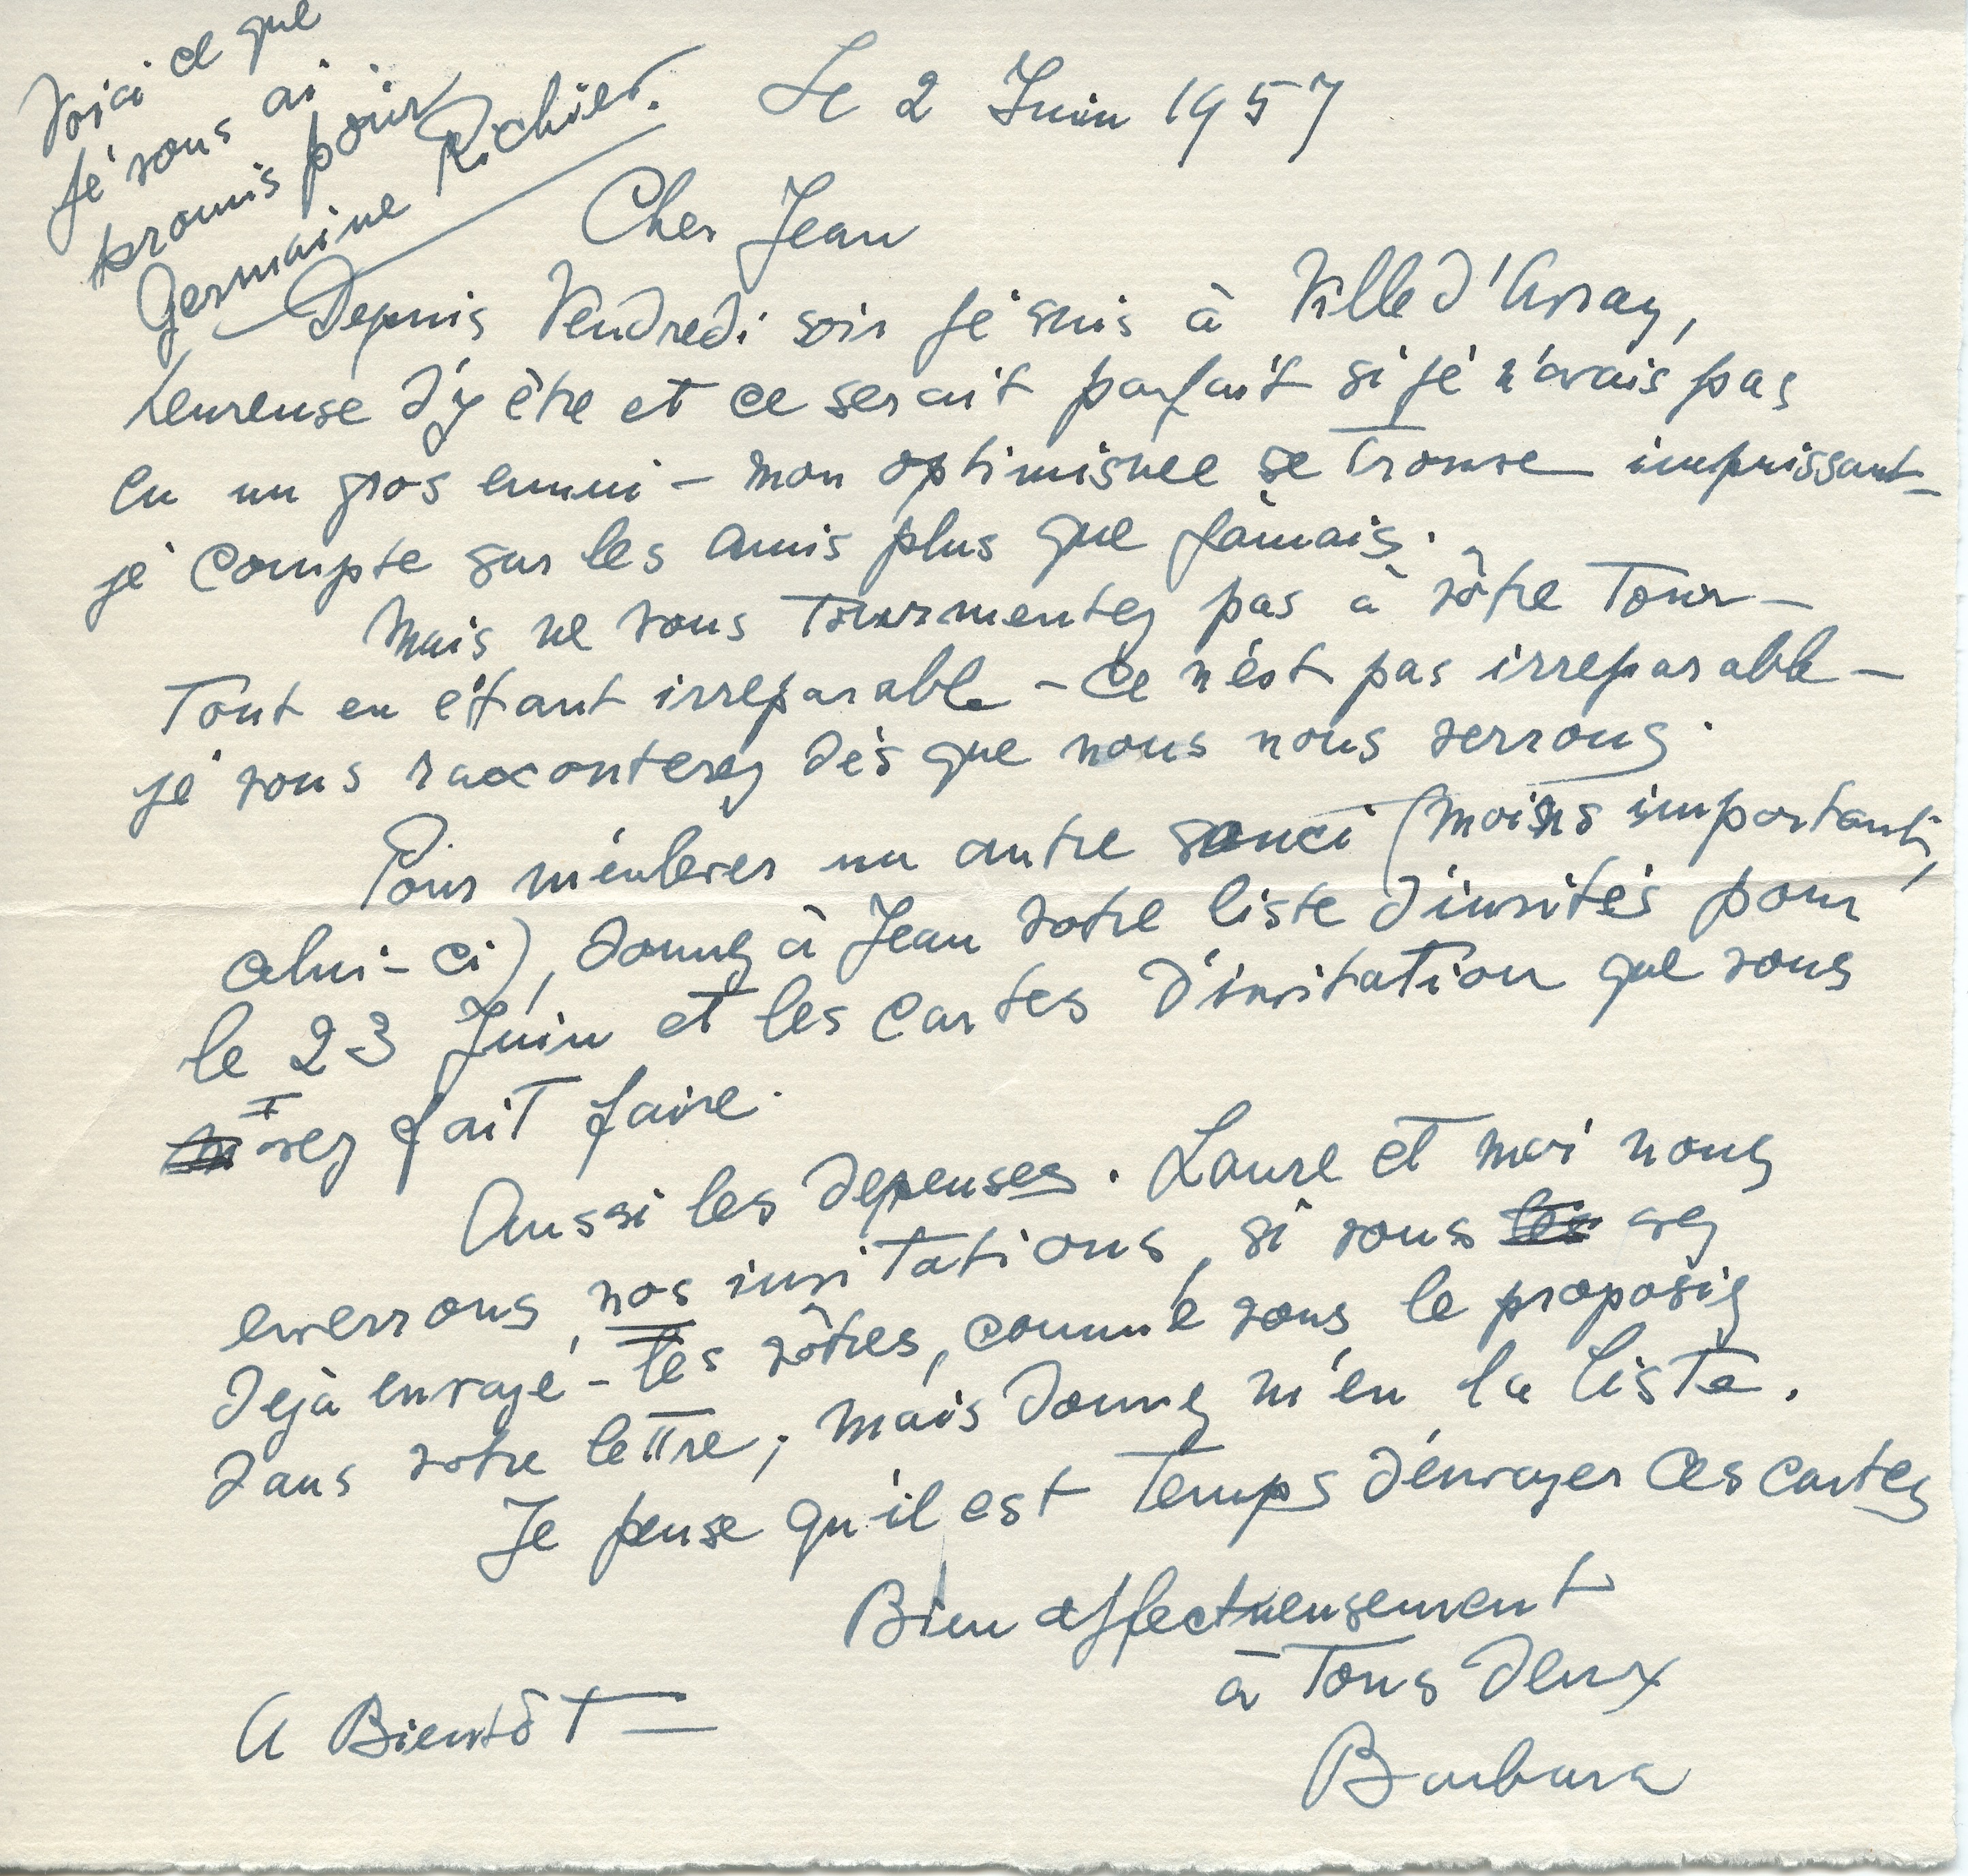 Voici ce que
je vous ai
promis pour
Germaine Richier.
Le 2 Juin 1957
Cher Jean
Depuis Vendredi soir je suis à Ville d'Avray,
heureuse d'y être et ce serait parfait si je n'avais pas
eu un gros ennui – mon optimisme se trouve impuissant –
je compte sur les amis plus que jamais.
Mais ne vous tourmentez pas à vôtre tour –
Tout en étant irreparable – ce n'est pas irreparable –
je vous raconterez dès que nous nous verrons.
Pour m'enlever un autre souci (moins important,
celui-ci), donnez à Jean votre liste d'invités pour
le 23 Juin et les cartes d'invitation que vous
avez fait faire.
Aussi les depenses. Laure et moi nous
enverrons, nos invitations, si vous avez
dejà envoyé – les vôtres, comme vous le proposiez
dans votre lettre; mais donnez m'en la liste.
Je pense qu'il est temps d'envoyer ces cartes
Bien affectueusement
à tous deux
A Bientôt
Barbara